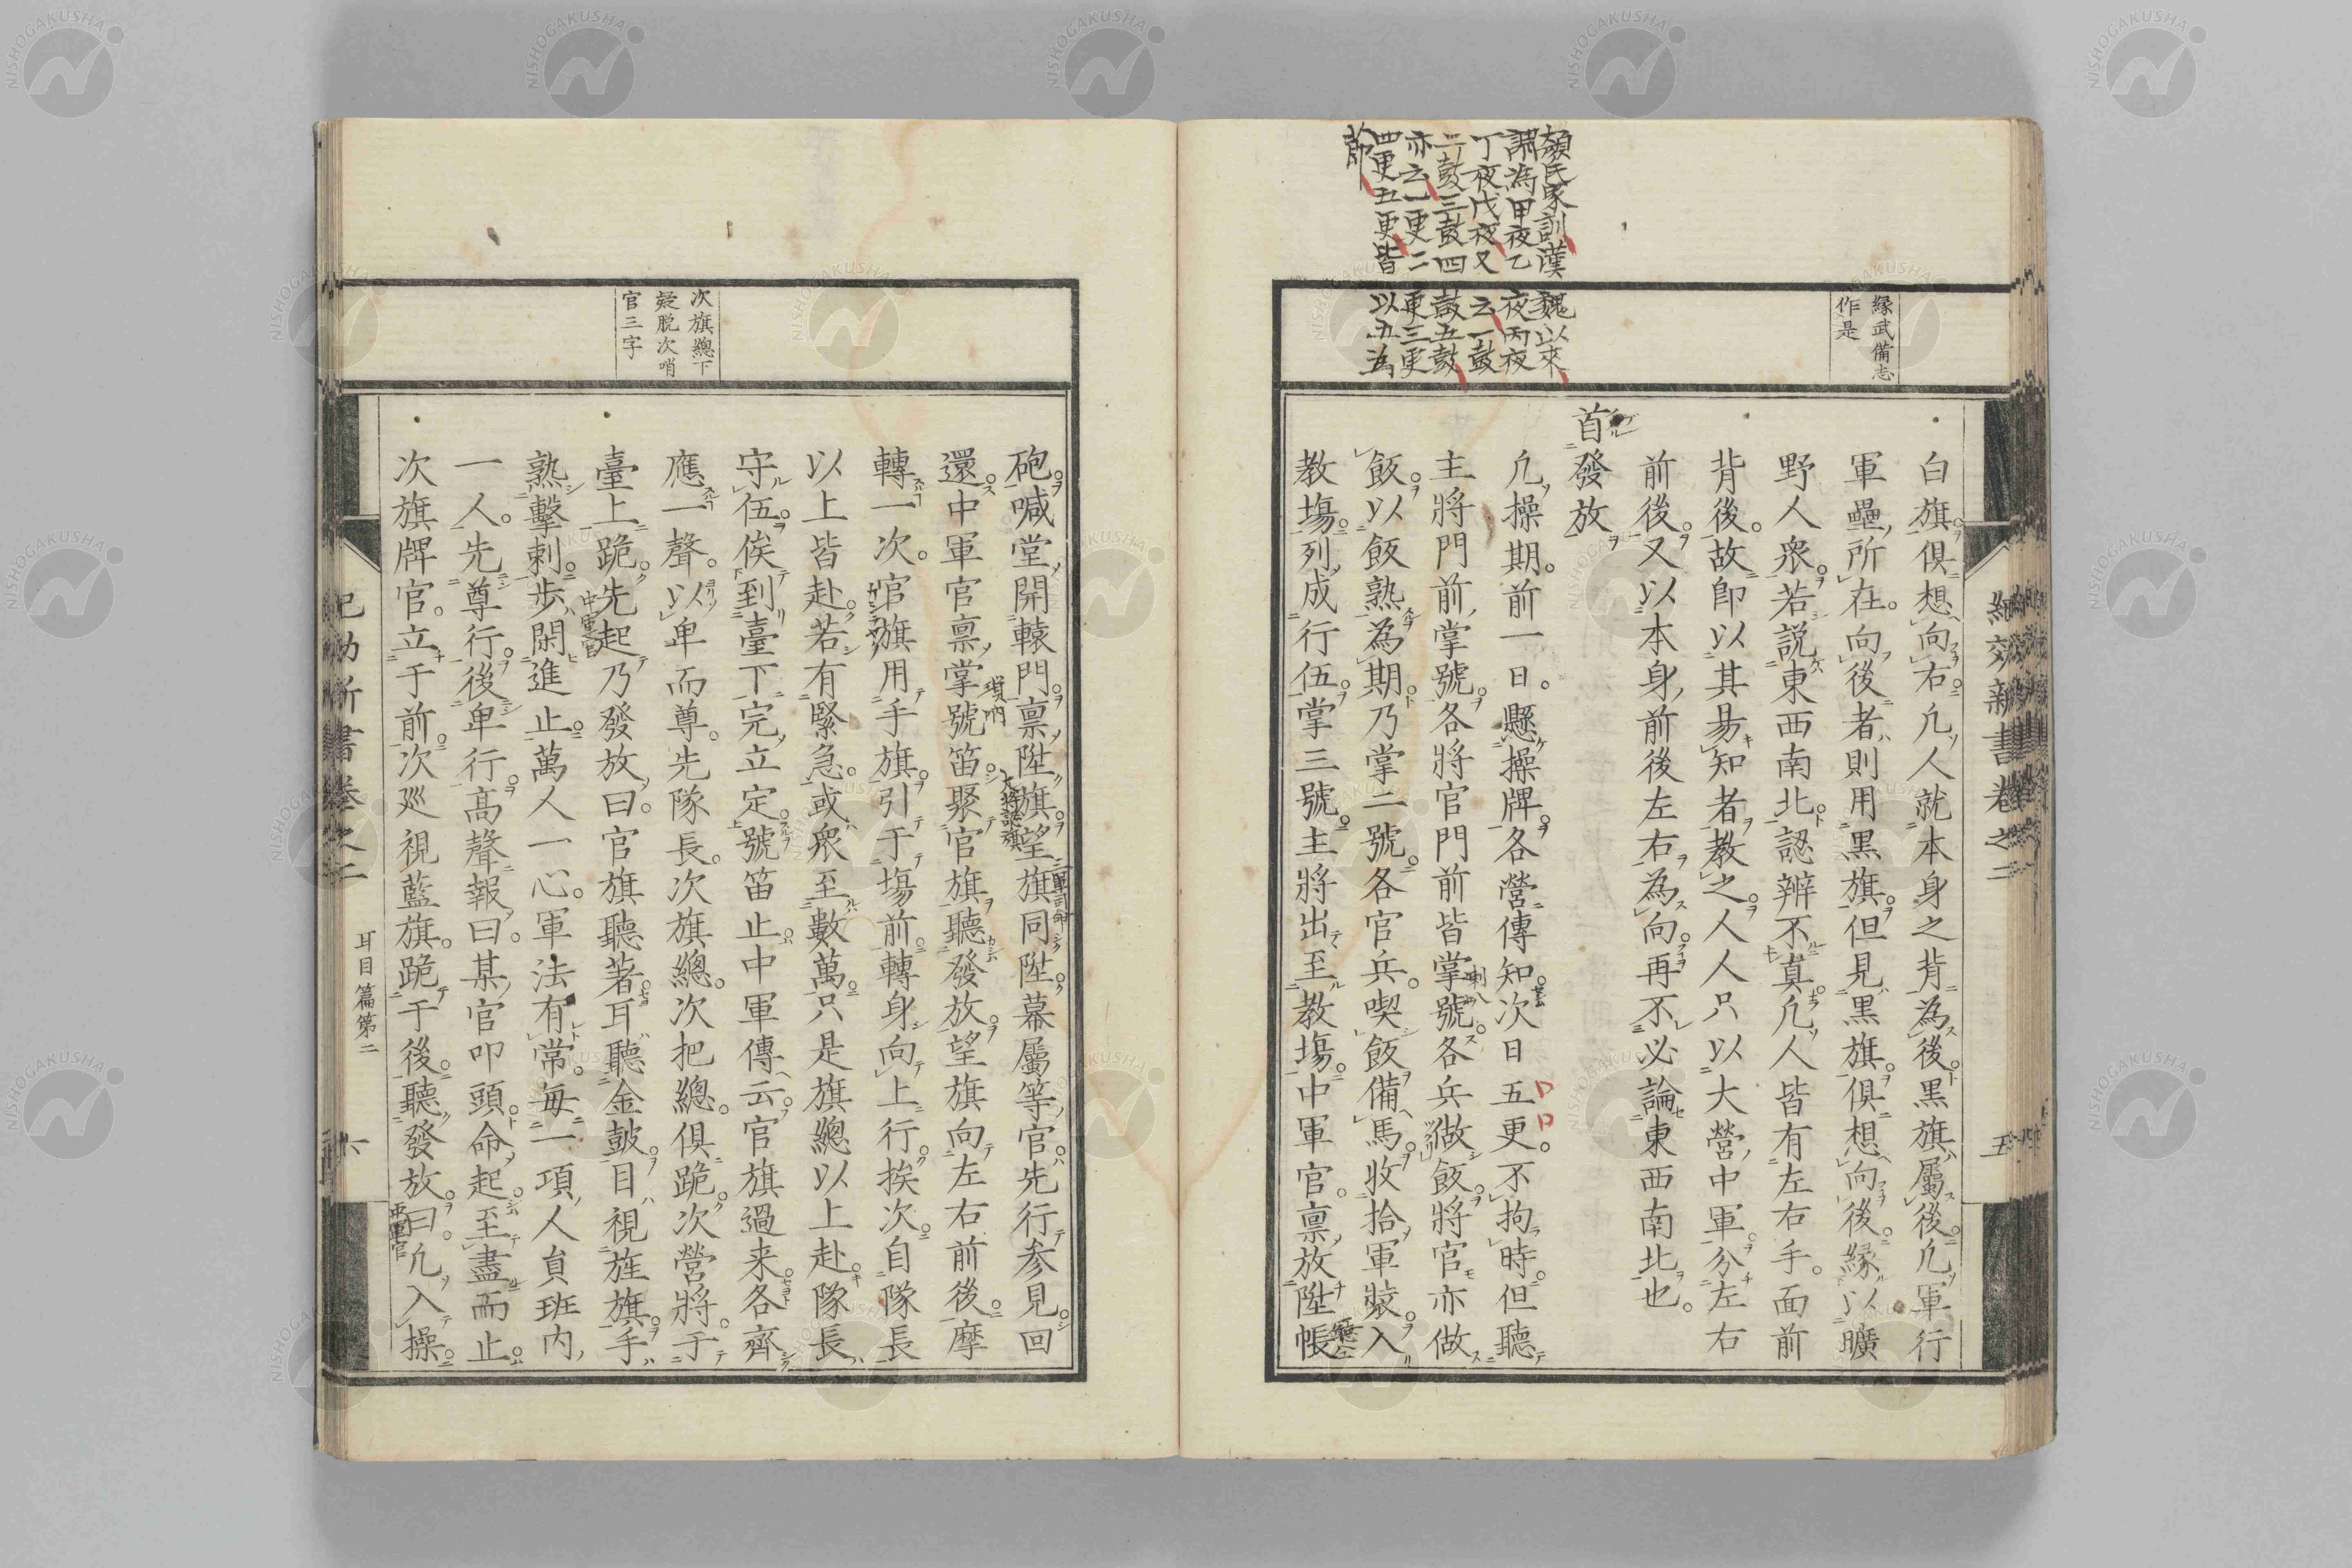 顔氏家訓漢魏以來
謂為甲夜乙夜丙夜
丁夜戊夜又云一鼓
二鼓三鼓四鼓五鼓
亦云一更二更三更
四更五更皆以五為
節
縁武備志
作是
紀效新書卷之二
五
白旗倶想向右凢人就本身之背為後黒旗屬後凢軍行
軍壘所在向後者則用黒旗但見黒旗倶想向後縁以曠
野人衆若説東西南北認辨不真凢人皆有左右手面前
背後故卽以其易知者教之人人只以大營中軍分左右
前後又以本身前後左右為向再不必論東西南北也
首發放
凢操期前一日懸操牌各營傳知次日五更不拘時但聽
主將門前掌號各將官門前皆掌號各兵做飯將官亦做
喇八
飯以飯熟為期乃掌二號各官兵喫飯備馬收拾軍裝入
教塲列成行伍掌三號主將出至教塲中軍官稟放陞帳
次旗總下
疑脱次哨
官三字
砲喊堂開轅門稟陞旗望旗同陞幕屬等官先行参見回
大將認旗
三軍司命
還中軍官稟掌號笛聚官旗聽發放望旗向左右前後摩
嗩吶
轉一次官旗用手旗引于塲前轉身向上行挨次自隊長
以上皆赴若有緊急或衆至數萬只是旗總以上赴隊長
守伍俟到臺下完立定號笛止中軍傳云官旗過来各齊
應一聲以卑而尊先隊長次旗總次把總倶跪次營將于
臺上跪先起乃發放曰官旗聽著耳聽金皷目視旌旗手
中軍官
熟擊刺歩閑進止萬人一心軍法有常毎一項人員班内
一人先尊行後卑行高聲報曰某官叩頭命起至盡而止
次旗牌官立于前次廵視藍旗跪于後聽發放曰凢入操
中軍官
紀效新書卷之二
耳目篇第二
六
NISHOGAKUSHA